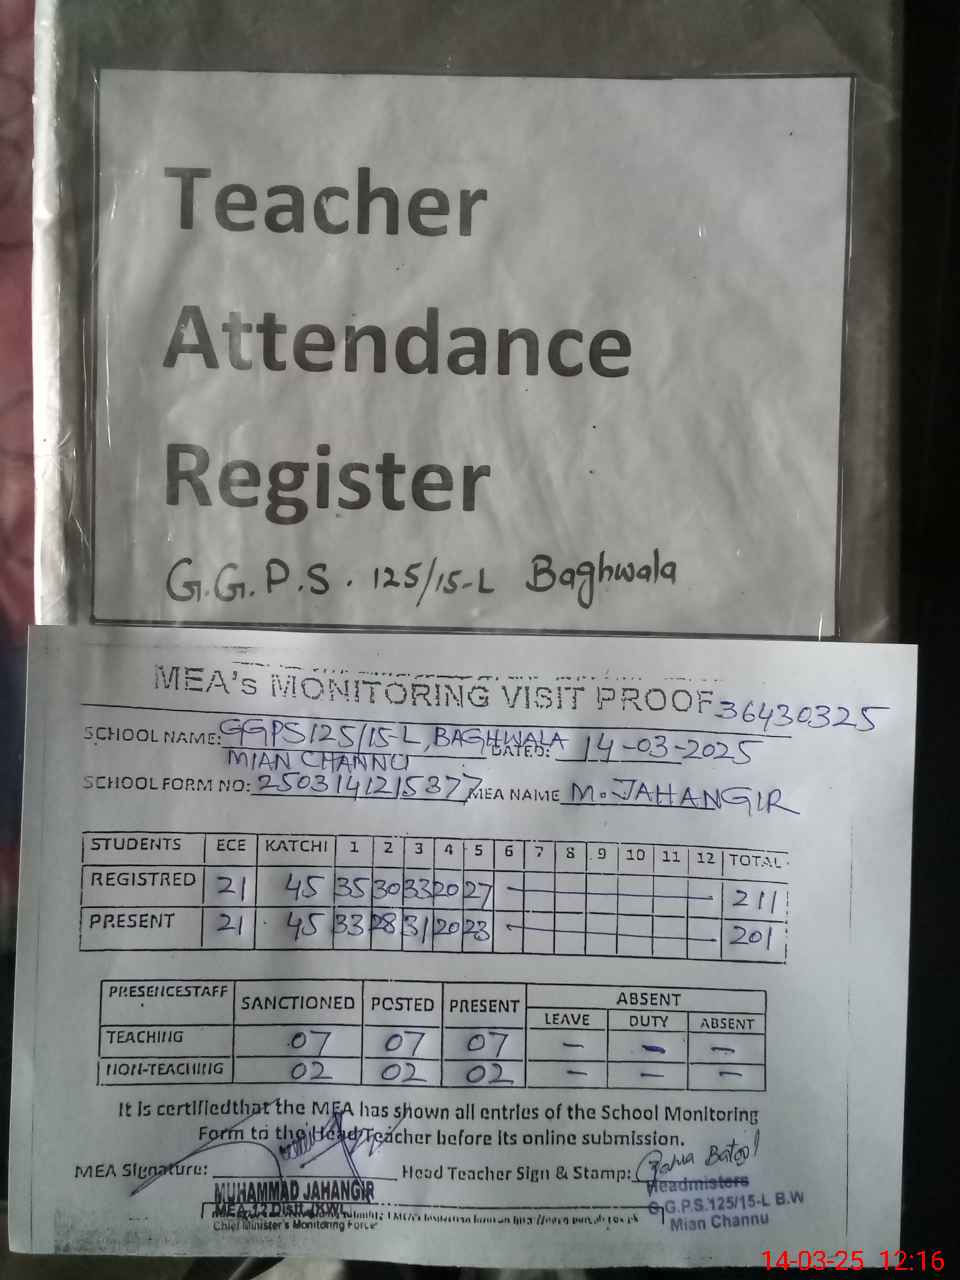 Teacher
Attendance
Register
G.G.P.S. 125/15-L Baghwala
MEA's MONITORING VISIT PROOF 36430325
SCHOOL NAME: GGPS 125/15-L, BAGHWALA DATED: 14-03-2025
MIAN CHANNU
SCHOOL FORM NO: 250314121537 MEA NAME M. JAHANGIR
STUDENTS ECE KATCHI 1 2 3 4 5 6 7 8 9 10 11 12 TOTAL
REGISTRED 21 45 35 30 33 20 27 211
PRESENT 21 45 33 28 31 20 23 201
PRESENCESTAFF SANCTIONED POSTED PRESENT ABSENT
LEAVE DUTY ABSENT
TEACHING 07 07 07 - - -
NON-TEACHING 02 02 02 - - -
It is certifiedthat the MEA has shown all entries of the School Monitoring
Form to the Head Teacher before its online submission.
MEA Signature: Head Teacher Sign & Stamp: Batool
MUHAMMAD JAHANGIR Headmisters
MEA-12 Distt. KWL G.G.P.S.125/15-L B.W
Chief Minister's Monitoring Force Mian Channu
14-03-25 12:16